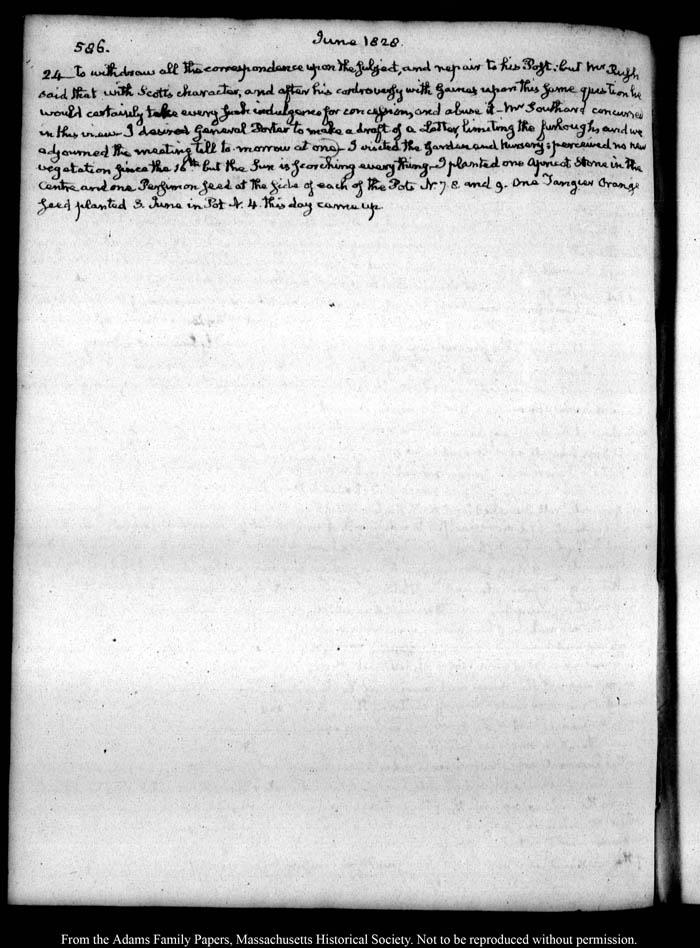 586.
June 1828.
24_ to withdraw all the correspondence upon the subject, and repair to his Post: but Mr. Rush
said that with Scott's character, and after his controversy with Gaines upon this same question he
would certainly take every such indulgence for concession, and abuse it_ Mr Southard concurred
in this view_ I desired General Porter to make a draft of a Letter, limiting the furlough, and we
adjourned the meeting till to-morrow at one_ I visited the Garden and Nursery: perceived no new
vegetation since the 16th but the Sun is scorching every thing_ I planted one Apricot Stone in the
Centre and one Persimon seed at the side of each of the Pots N. 7 8. and 9. One Tangier Orange
seed planted 3. June in Pot N. 4. this day came up
From the Adams Family Papers, Massachusetts Historical Society. Not to be reproduced without permission.